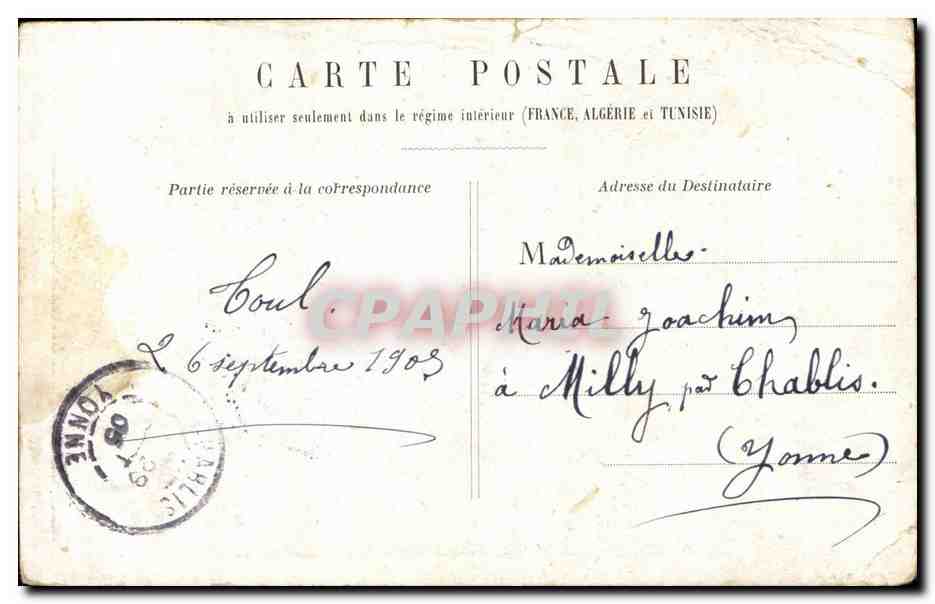 CARTE POSTALE
à utiliser seulement dans le régime intérieur (FRANCE, ALGÉRIE et TUNISIE)
Partie réservée à la correspondance
Toul.
26 septembre 1905
CHABLIS
YONNE
05
Adresse du Destinataire
Mademoiselle
Maria Joachim
à Milly par Chablis.
(Yonne)
CPAPHIL